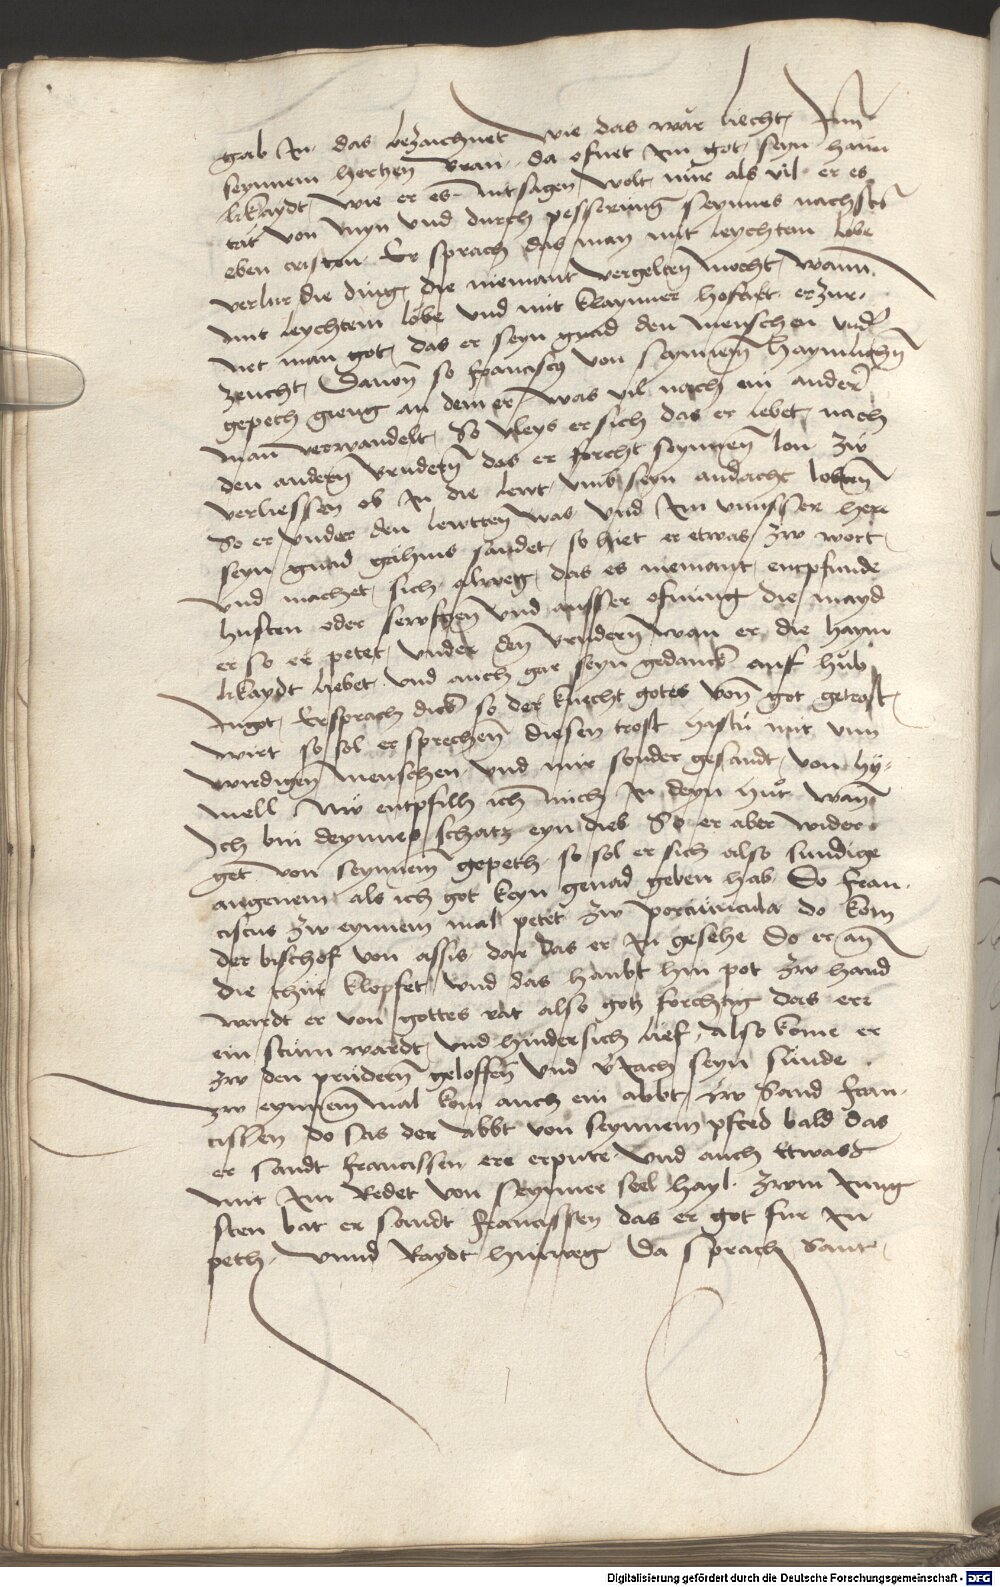 gab In. das bezaichnet wie das war liecht, Inn
seynnem hertzen bran. da ofnet Im got, seyn haim
likaydt, wie er es nit sagen wolt, nur als vil er es
tät von myn und durch pesserung seynnes nachsten
eben cristen. Er sprach das man mit leychtem lobe
verlur die ding, die niemant vergelten mocht, wann
mit leychtem lobe und mit klaynner hofart erzur,
net man got, das er seyn gnad den menschen under
zeucht, Davon so franciscus von seynnem haymlichen
gepech gieng an dem er was vil nach ein ander
man verwandelt, So vleys er sich das er lebet, nach
den andern brudern das er forcht seynnen lon zw
verliessen ob In die lewt, umb seyn andacht lobten
So er under den lewtten was und Im unnsser herr
seyn gnad gahns sandet, so hiet er etwas zw wort,
und machet, sich alweg, das es niemant, entpfunde
husten oder sewftzen und ausser ofnung die mayd
er so er petet, under den brudern wan er die haym
likaydt liebet, und auch gar seyn gedanck auf hub
Ingot, Er sprach dick so der knecht gotes von got getrost,
wirt so sol er sprechen diesen trost hastu mit unn
wirdigen menschen und mir sonder gesandt, von hy-
mell Nw entpfilh ich mich In deyn hut wann
Ich bin deynnes schatz eyn dieb So er aber wider
get von seynnem gepeth, so sol er sich also sundige
angenem als ich got keyn genad geben hab. Do fran.
ciscus zw eynnem mal petet zw portiuncula do kom
der bischof von assis dar das er In gesehe Do er an
die thür klopfet, und das haubt hin pot zw hand
wardt er von gottes rat also gotz forchtig das err
ein stum wardt, und hinder sich lief, also kome er
zw den prudern geloffen und sprach seyn sunde
zw eynnem mal kom auch ein abbt, zw Sand fran.
cissen do sas der abbt von seynnem pferd bald das
er sandt francissen ere erpute und auch Etwas
mit Im Redet von seynner sel hayl. zwm Jung
sten bat er sandt francissen das er got fur In
peth, unnd Raydt hinweg Da sprach Sant,
Digitalisierung gefördert durch die Deutsche Forschungsgemeinschaft - DFG